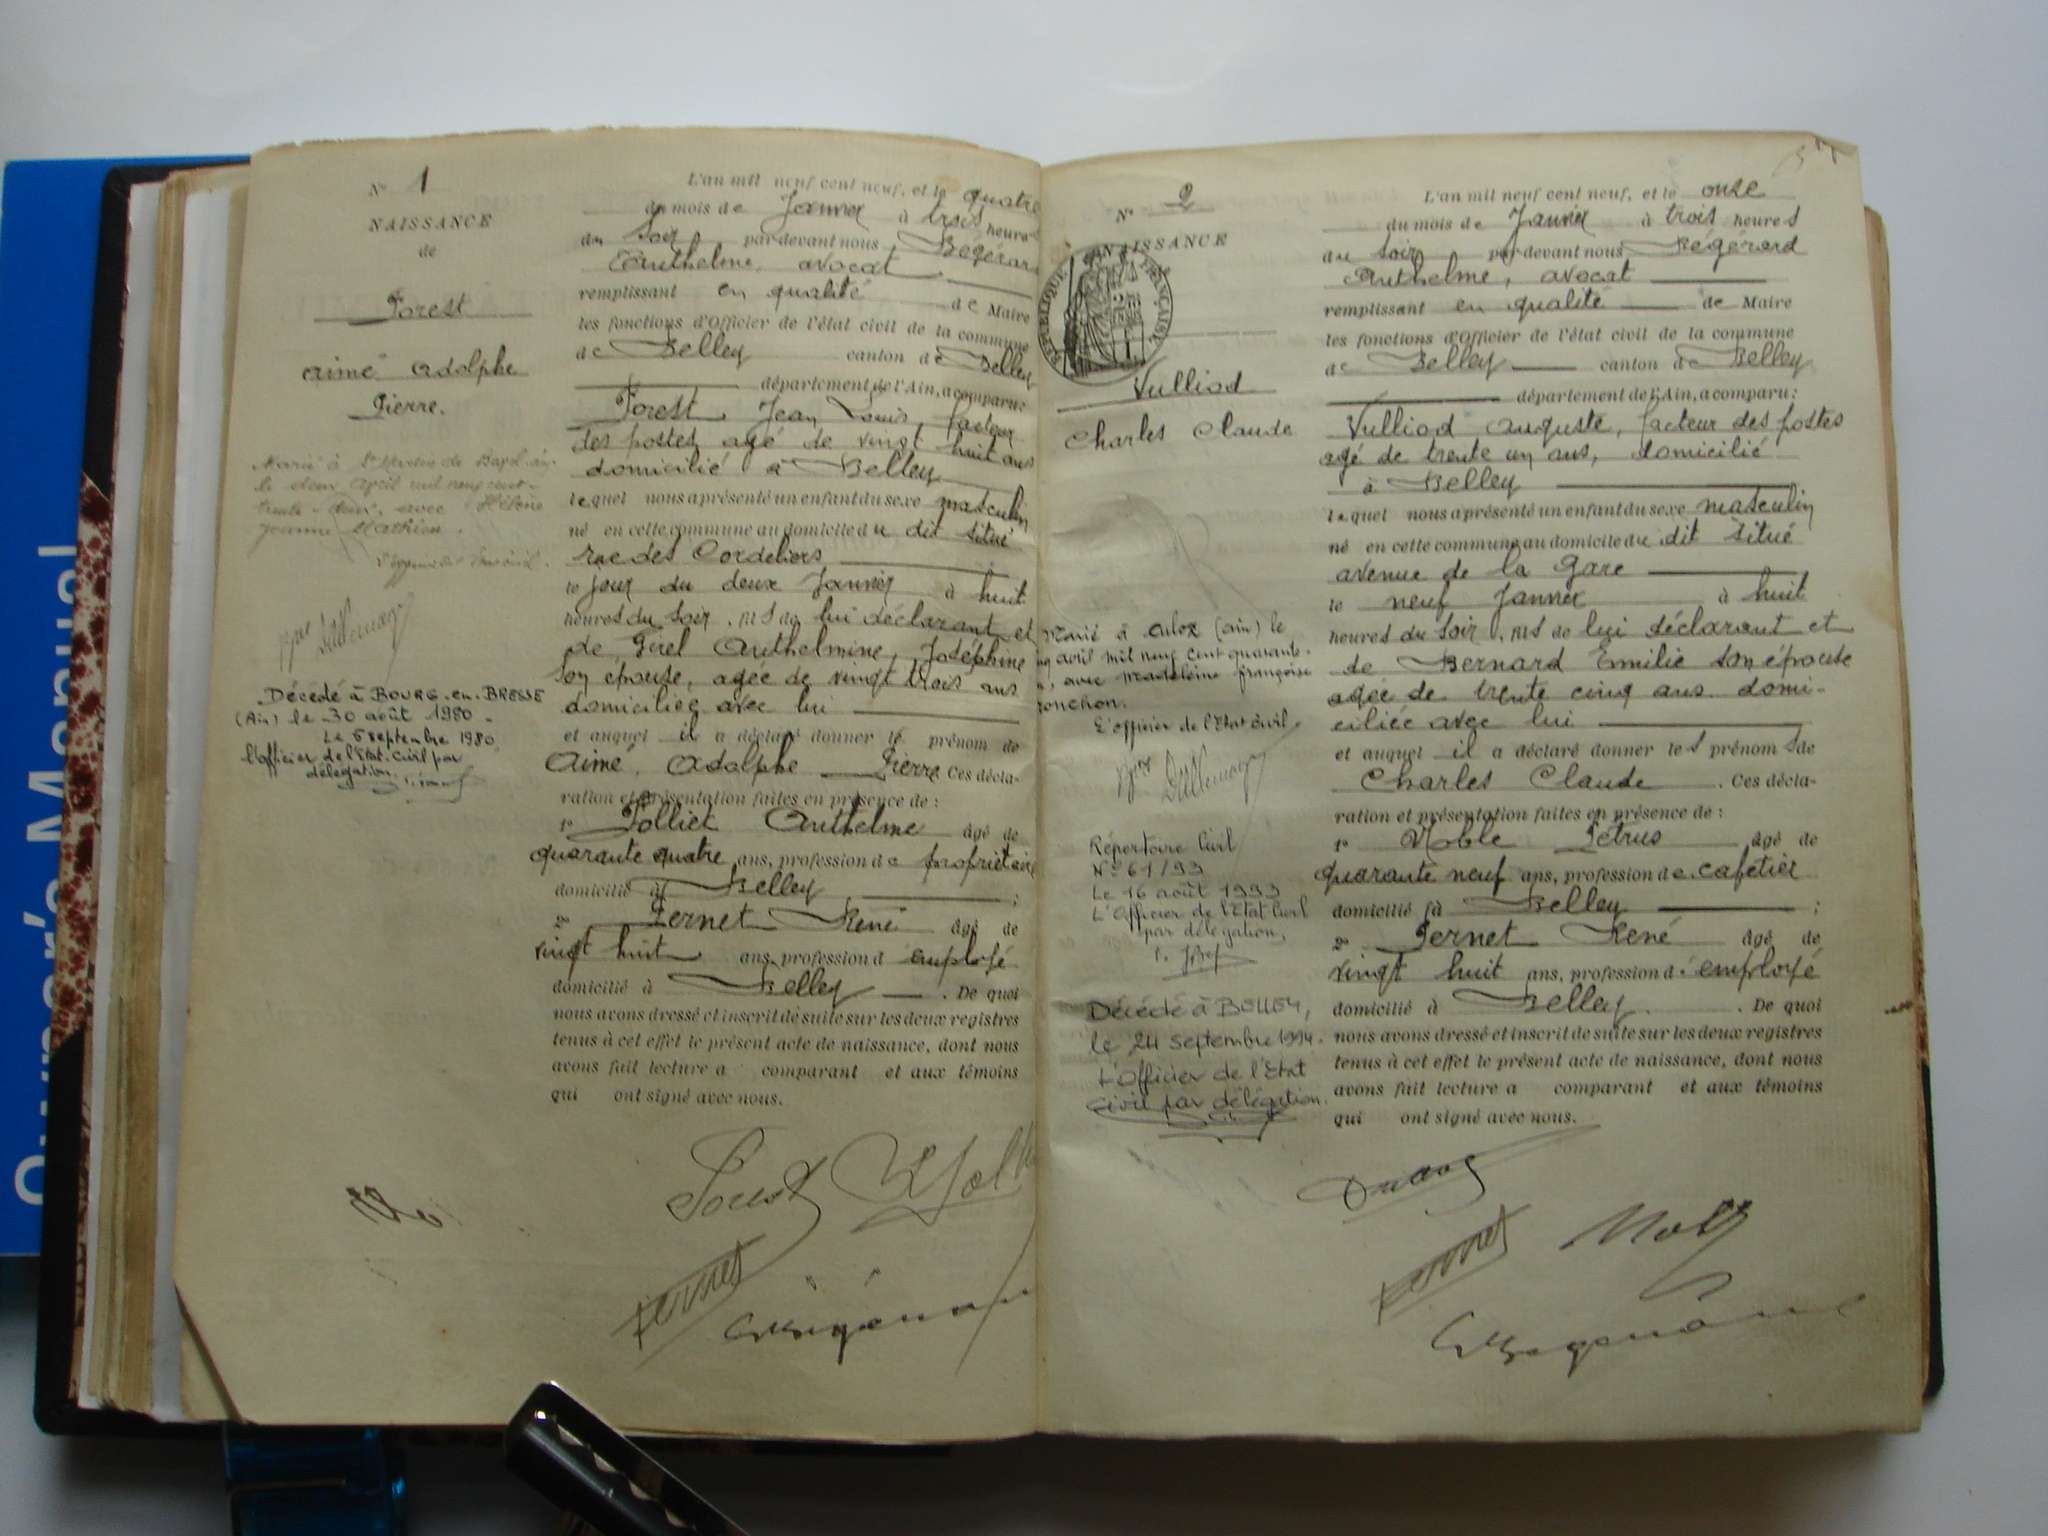 Nº 1
NAISSANCE
de
Forest
Aimé Adolphe
Pierre.
Marié à St Martin de
le deux avril mil neuf cent
trente-deux, avec Hélène
Jeanne Mathieu.
Décédé à BOURG-en-BRESSE
(Ain) le 30 août 1980 -
Le 5 septembre 1980,
l'officier de l'Etat-Civil par
délégation.
L'an mil neuf cent neuf, et le quatre
du mois de Janvier à trois heures
du soir par-devant nous Bégérard
Anthelme, avocat
remplissant en qualité de Maire
les fonctions d'Officier de l'état civil de la commune
de Belley canton de Belley
département de l'Ain, a comparu:
Forest Jean Louis, facteur
des postes, agé de vingt huit ans
domicilié à Belley
lequel nous a présenté un enfant du sexe masculin
né en cette commune au domicile du dit situé
rue des Cordeliers
le jour du deux Janvier à huit
heures du soir, fils de lui déclarant et
de Girel Anthelmine, Joséphine
son épouse, agée de vingt trois ans
domiciliée avec lui
et auquel il a déclaré donner le prénom de
Aimé, Adolphe Pierre Ces décla-
ration et présentation faites en présence de:
1º Jolliet Anthelme âgé de
quarante quatre ans, profession de propriétaire
domicilié à Belley ;
2º Pernet René âgé de
vingt huit ans, profession d employé
domicilié à Belley . De quoi
nous avons dressé et inscrit de suite sur les deux registres
tenus à cet effet le présent acte de naissance, dont nous
avons fait lecture a comparant et aux témoins
qui ont signé avec nous.
Forest
Pernet
Nº 2
NAISSANCE
RÉPUBLIQUE FRANÇAISE
Vulliod
Charles Claude
Marié à Culoz (Ain) le
avril mil neuf cent quarante-
, avec Madeleine Françoise
L'officier de l'Etat Civil.
Répertoire Civil
Nº 61/93
Le 16 août 1993
L'Officier de l'Etat Civil
par délégation,
Décédé à BELLEY,
le 24 septembre 1994.
L'Officier de l'Etat
Civil par délégation.
L'an mil neuf cent neuf, et le onze
du mois de Janvier à trois heures
du soir par-devant nous Bégérard
Anthelme, avocat
remplissant en qualité de Maire
les fonctions d'Officier de l'état civil de la commune
de Belley canton de Belley
département de l'Ain, a comparu:
Vulliod Auguste, facteur des postes
agé de trente un ans, domicilié
à Belley
lequel nous a présenté un enfant du sexe masculin
né en cette commune au domicile du dit situé
avenue de la Gare
le neuf Janvier à huit
heures du soir, fils de lui déclarant et
de Bernard Emilie son épouse
agée de trente cinq ans domi-
ciliée avec lui
et auquel il a déclaré donner les prénoms de
Charles Claude . Ces décla-
ration et présentation faites en présence de:
1º Noble Petrus âgé de
quarante neuf ans, profession de cafetier
domicilié à Belley ;
2º Pernet René âgé de
vingt huit ans, profession d'employé
domicilié à Belley . De quoi
nous avons dressé et inscrit de suite sur les deux registres
tenus à cet effet le présent acte de naissance, dont nous
avons fait lecture a comparant et aux témoins
qui ont signé avec nous.
Pernet